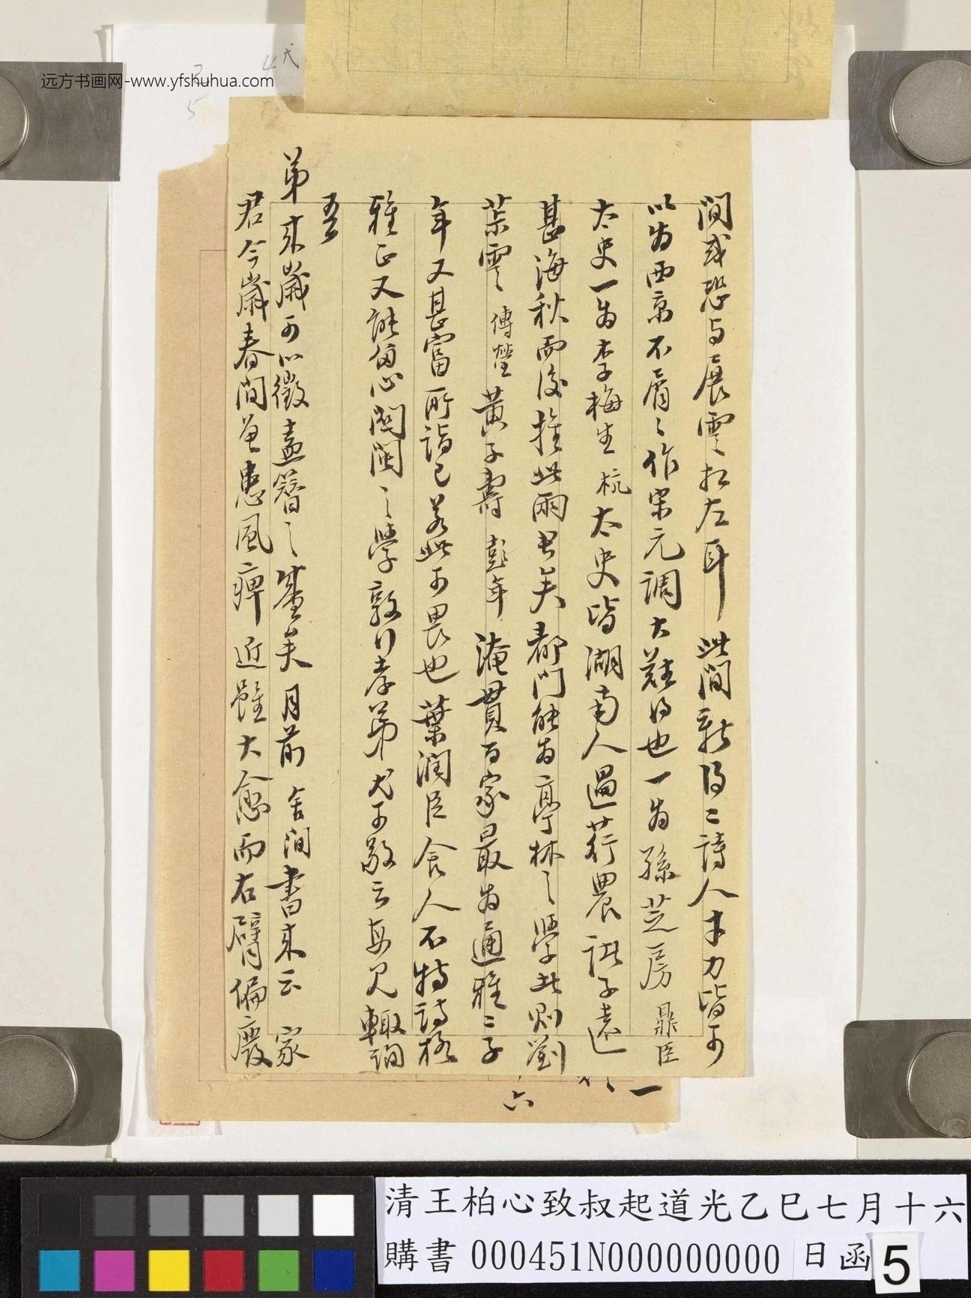 远方书画网-www.yfshuhua.com
間或恐与展雲相左耳此間新得二詩人才力皆可
以為西京不屑屑作宋元調大難得也一為孫芝房鼎臣
太史一為李梅生杭太史皆湖南人過荇農詆子遠
甚海秋而後推此兩君矣都門能為亭林之學者則劉
茮雲傳瑩黃子壽彭年淹貫百家最為通雅二子
年又甚富所詣已若此可畏也葉潤臣舍人不特詩格
雅正又能留心關閩之學敦行孝弟尤可敬云每見輒詢
吾
弟來歲可以徵盍簪之盛矣月前舍間書來云家
君今歲春間曾患風痺近雖大愈而右臂偏廢
一
六
清王柏心致叔起道光乙巳七月十六
購書 000451N000000000 日函 5